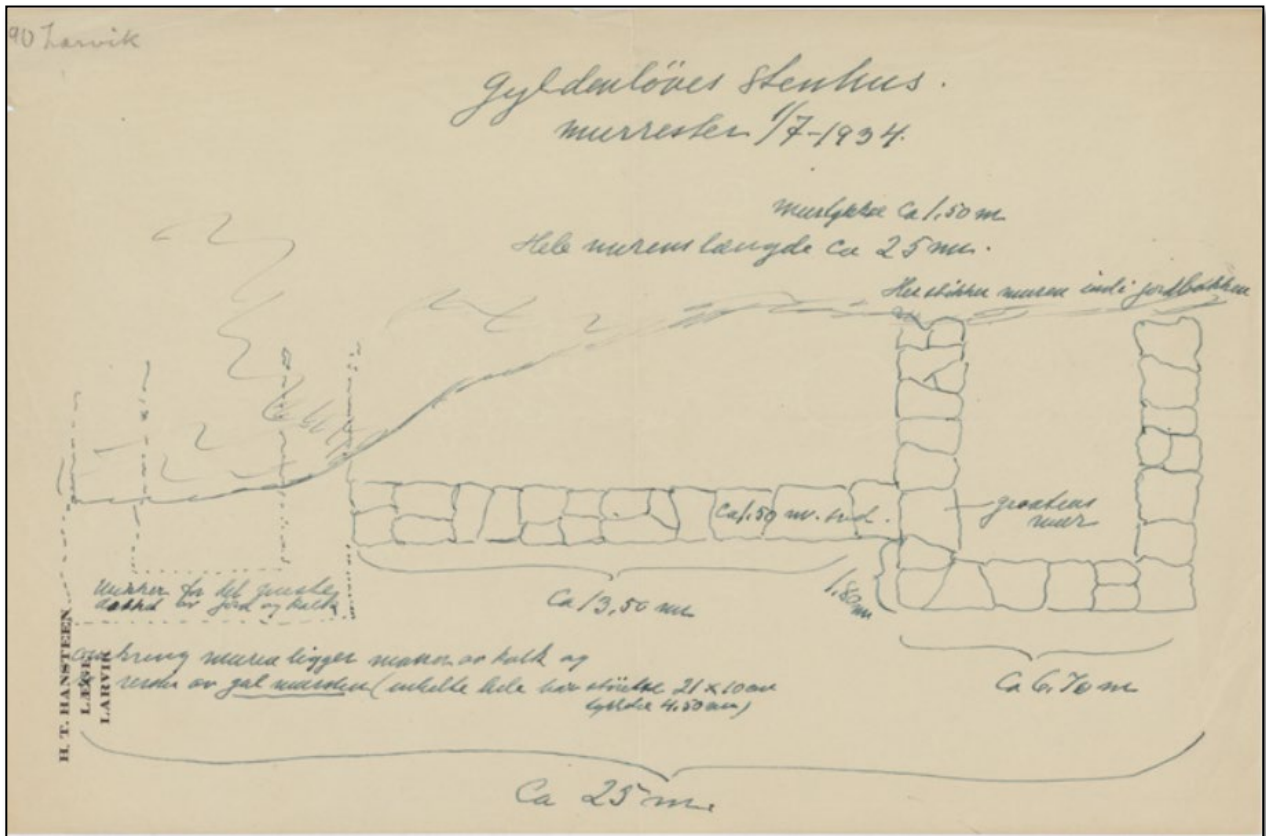 90 Larvik
Gyldenløves Stenhus.
murrester 1/7-1934.
murtykkelse Ca 1.50 m
Hele murens længde ca 25 m.
Her stikker muren ind i jordbakken
Ca 1.50 m. bred.
graastens
mur
Murene for det meste
dækket av jord og kalk
Ca 13,50 m
1.80 m
Omkring muren ligger masser av kalk og
rester av gul mursten (enkelte hele har størrelse 21 x 10 cm
tykkelse 4.50 cm)
Ca 6.70 m
Ca 25 m.
H. T. HANSTEEN
LÆGE
LARVIK